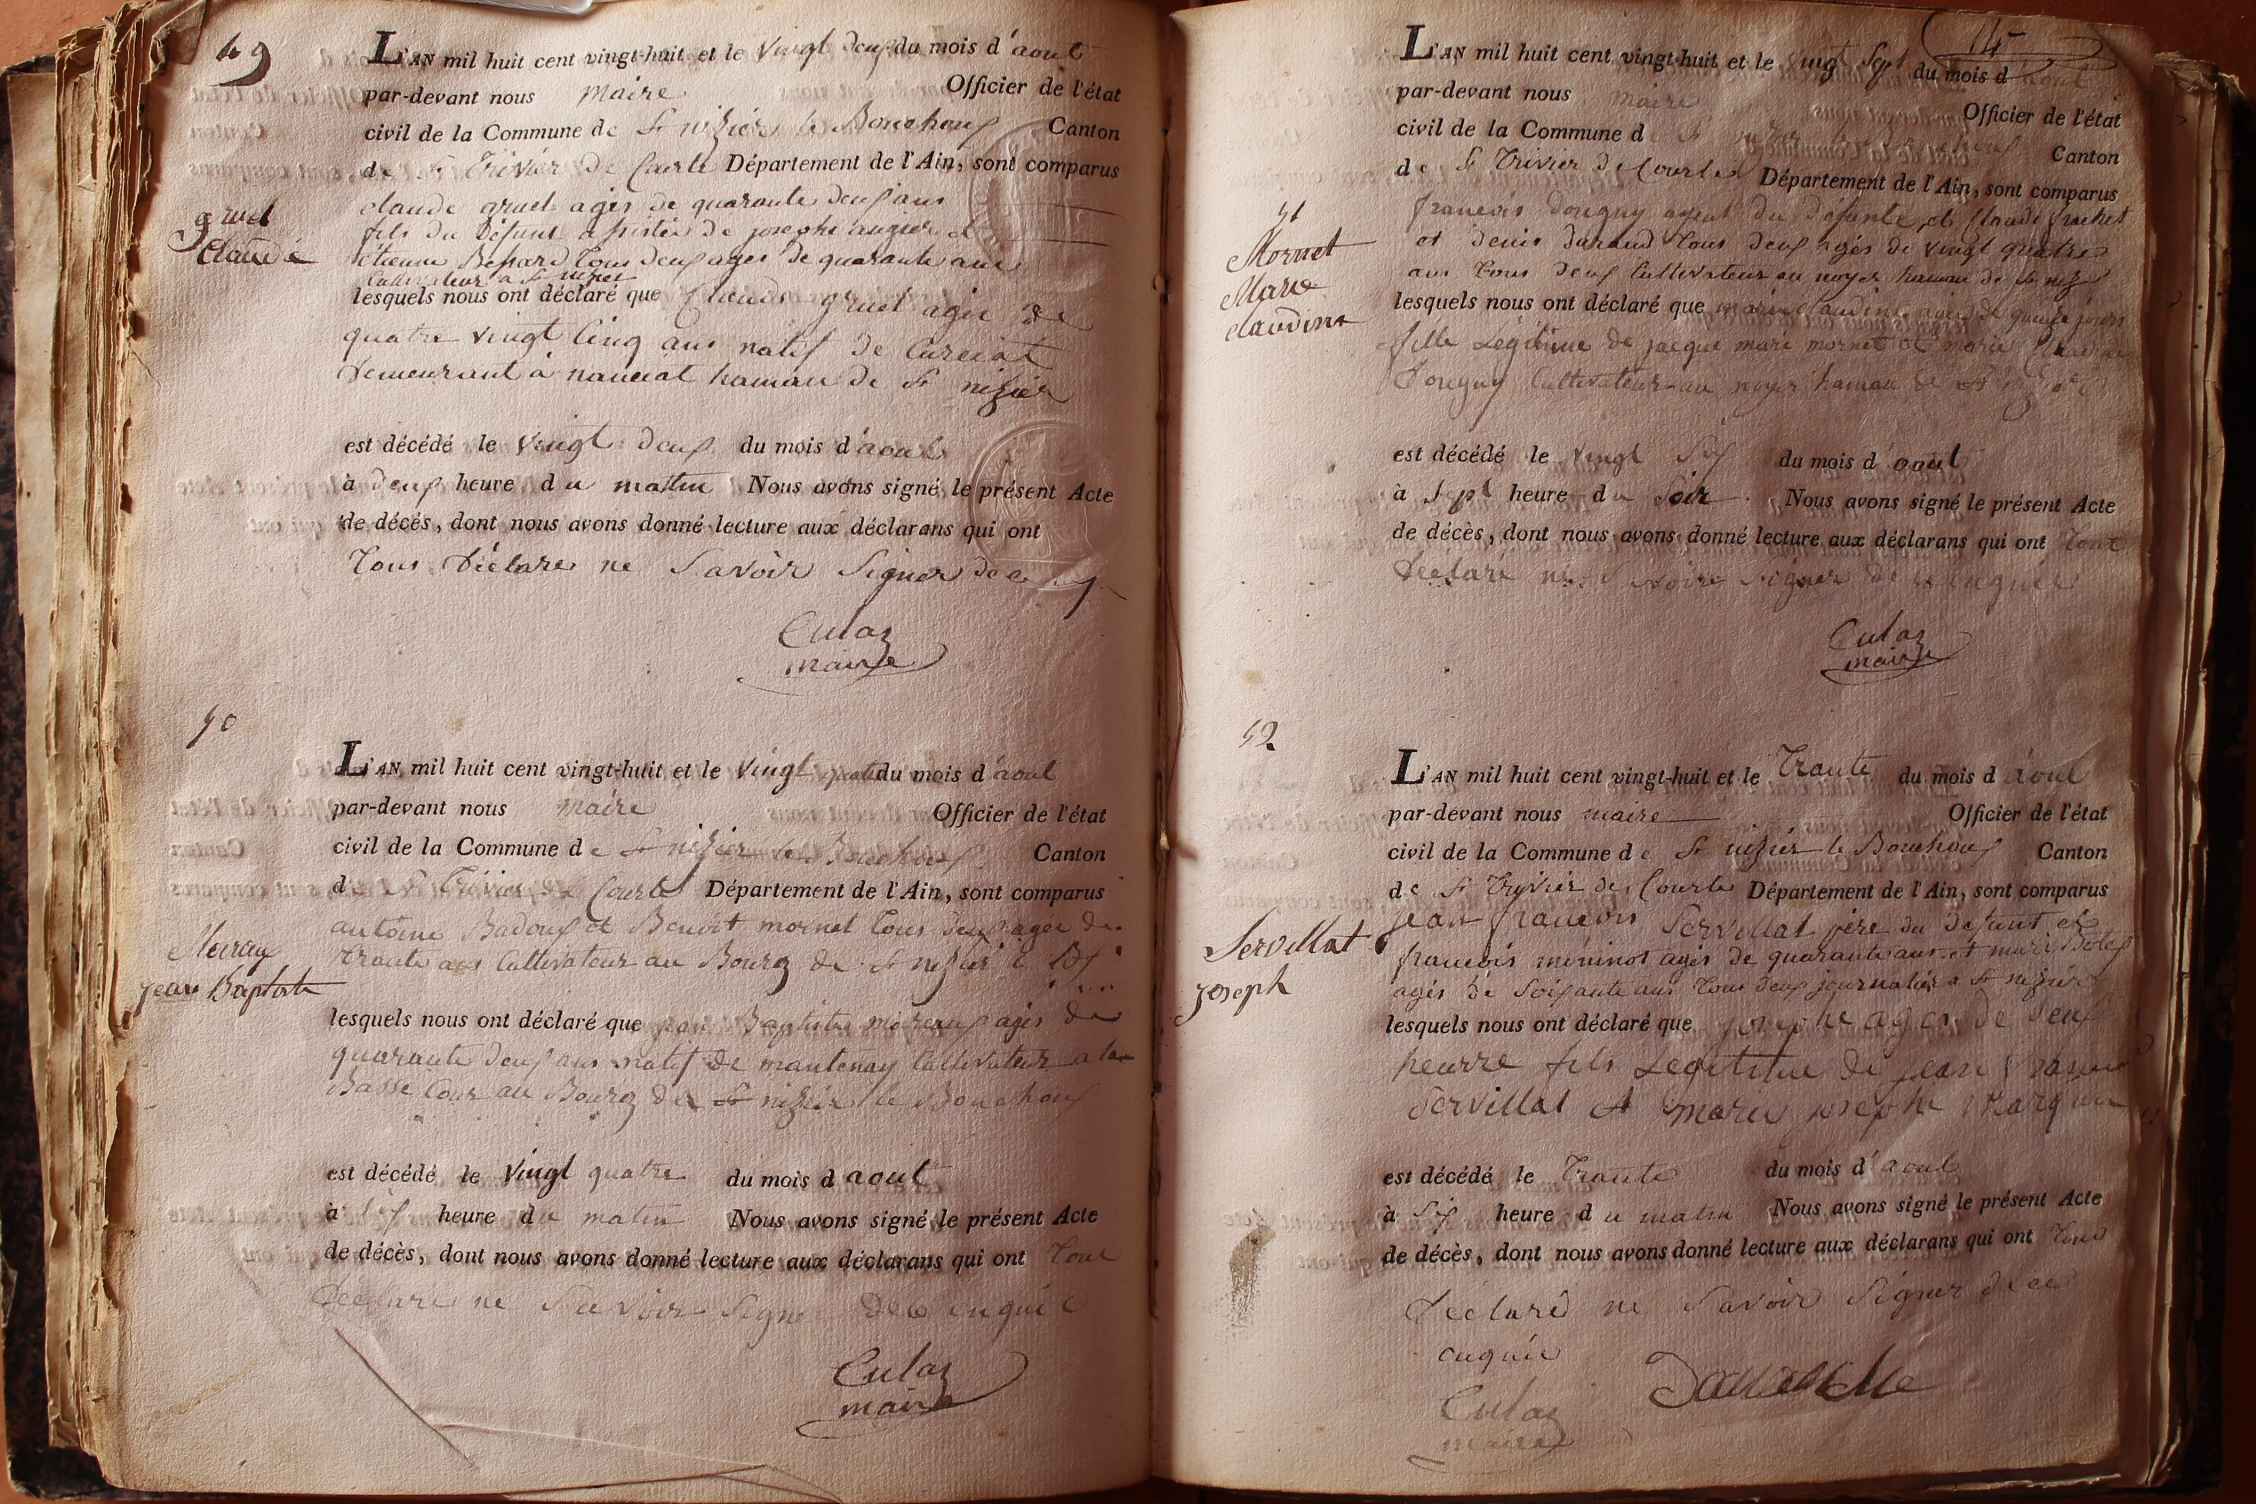 49
L'AN mil huit cent vingt-huit et le vingt deux du mois d'aout
par-devant nous maire Officier de l'état
civil de la Commune de St nizier le Bouchoux Canton
de St Trivier de Courte Département de l'Ain, sont comparus
gruel
Claude
claude gruel agés de quarante deux ans
fils du défunt assistée de josephe augier et
étienne Bessard tous deux ages de quarante ans
Cultivateur a St nizier
lesquels nous ont déclaré que Claude gruel agée de
quatre vingt cinq ans natif de Curciat
demeurant à nanciat hamau de St nizier
est décédé le vingt deux du mois d'aout
à deux heure du matin Nous avons signé le présent Acte
de décès, dont nous avons donné lecture aux déclarans qui ont
tous déclare ne savoir signer de ce
Culaz
maire
50
L'AN mil huit cent vingt-huit et le vingt quatre du mois d'aout
par-devant nous maire Officier de l'état
civil de la Commune de St nizier le Bouchoux Canton
d St Trivier de Courte Département de l'Ain, sont comparus
jean Baptiste
antoine Badoux et Benoit mornet tous deux agée de
trante ans Cultivateur au Bourg de St nizier
lesquels nous ont déclaré que jean Baptiste agés de
quarante deux ans natif de mantenay Cultivateur a la
Basse Cour au Bourg de St nizier le Bouchoux
est décédé le vingt quatre du mois d aout
à six heure du matin Nous avons signé le présent Acte
de décès, dont nous avons donné lecture aux déclarans qui ont tout
déclare ne savoir signer de ce enquie
Culaz
maire
L'AN mil huit cent vingt-huit et le vingt sept du mois d'aout
par-devant nous maire Officier de l'état
civil de la Commune d St nizier Canton
de St Trivier de Courte Département de l'Ain, sont comparus
51
Mornet
Marie
claudine
francois Dougny ayeul du défunte et Claude frachet
et denis durand tous deux agés de vingt quatre
ans tous deux Cultivateur au noyer hamau de St niz
lesquels nous ont déclaré que marie claudine agée de quinze jours
fille Légitime de jacque marie mornet et marie
Dougny Cultivateur au noyer hamau de St nizier
est décédé le vingt six du mois d'aout
à sept heure du soir. Nous avons signé le présent Acte
de décès, dont nous avons donné lecture aux déclarans qui ont tout
déclaré ne savoire signer de ce enquie
Culaz
maire
52
L'AN mil huit cent vingt-huit et le Trante du mois d'aout
par-devant nous maire Officier de l'état
civil de la Commune de St nizier le Bouchoux Canton
de St Tryvier de Courte Département de l'Ain, sont comparus
Servillat
joseph
jean francois Servillat père du défunt et
francois méninot agés de quarante ans et
agés de soixante ans tous deux journalier a St nizier
lesquels nous ont déclaré que josephe ages de deux
heurre fils Legitime de jean francois
Servillat et marie josephe
est décédé le Trante du mois d'aout
à six heure du matin Nous avons signé le présent Acte
de décès, dont nous avons donné lecture aux déclarans qui ont tous
déclaré ne savoir signer de ce
enquie
Culaz
maire